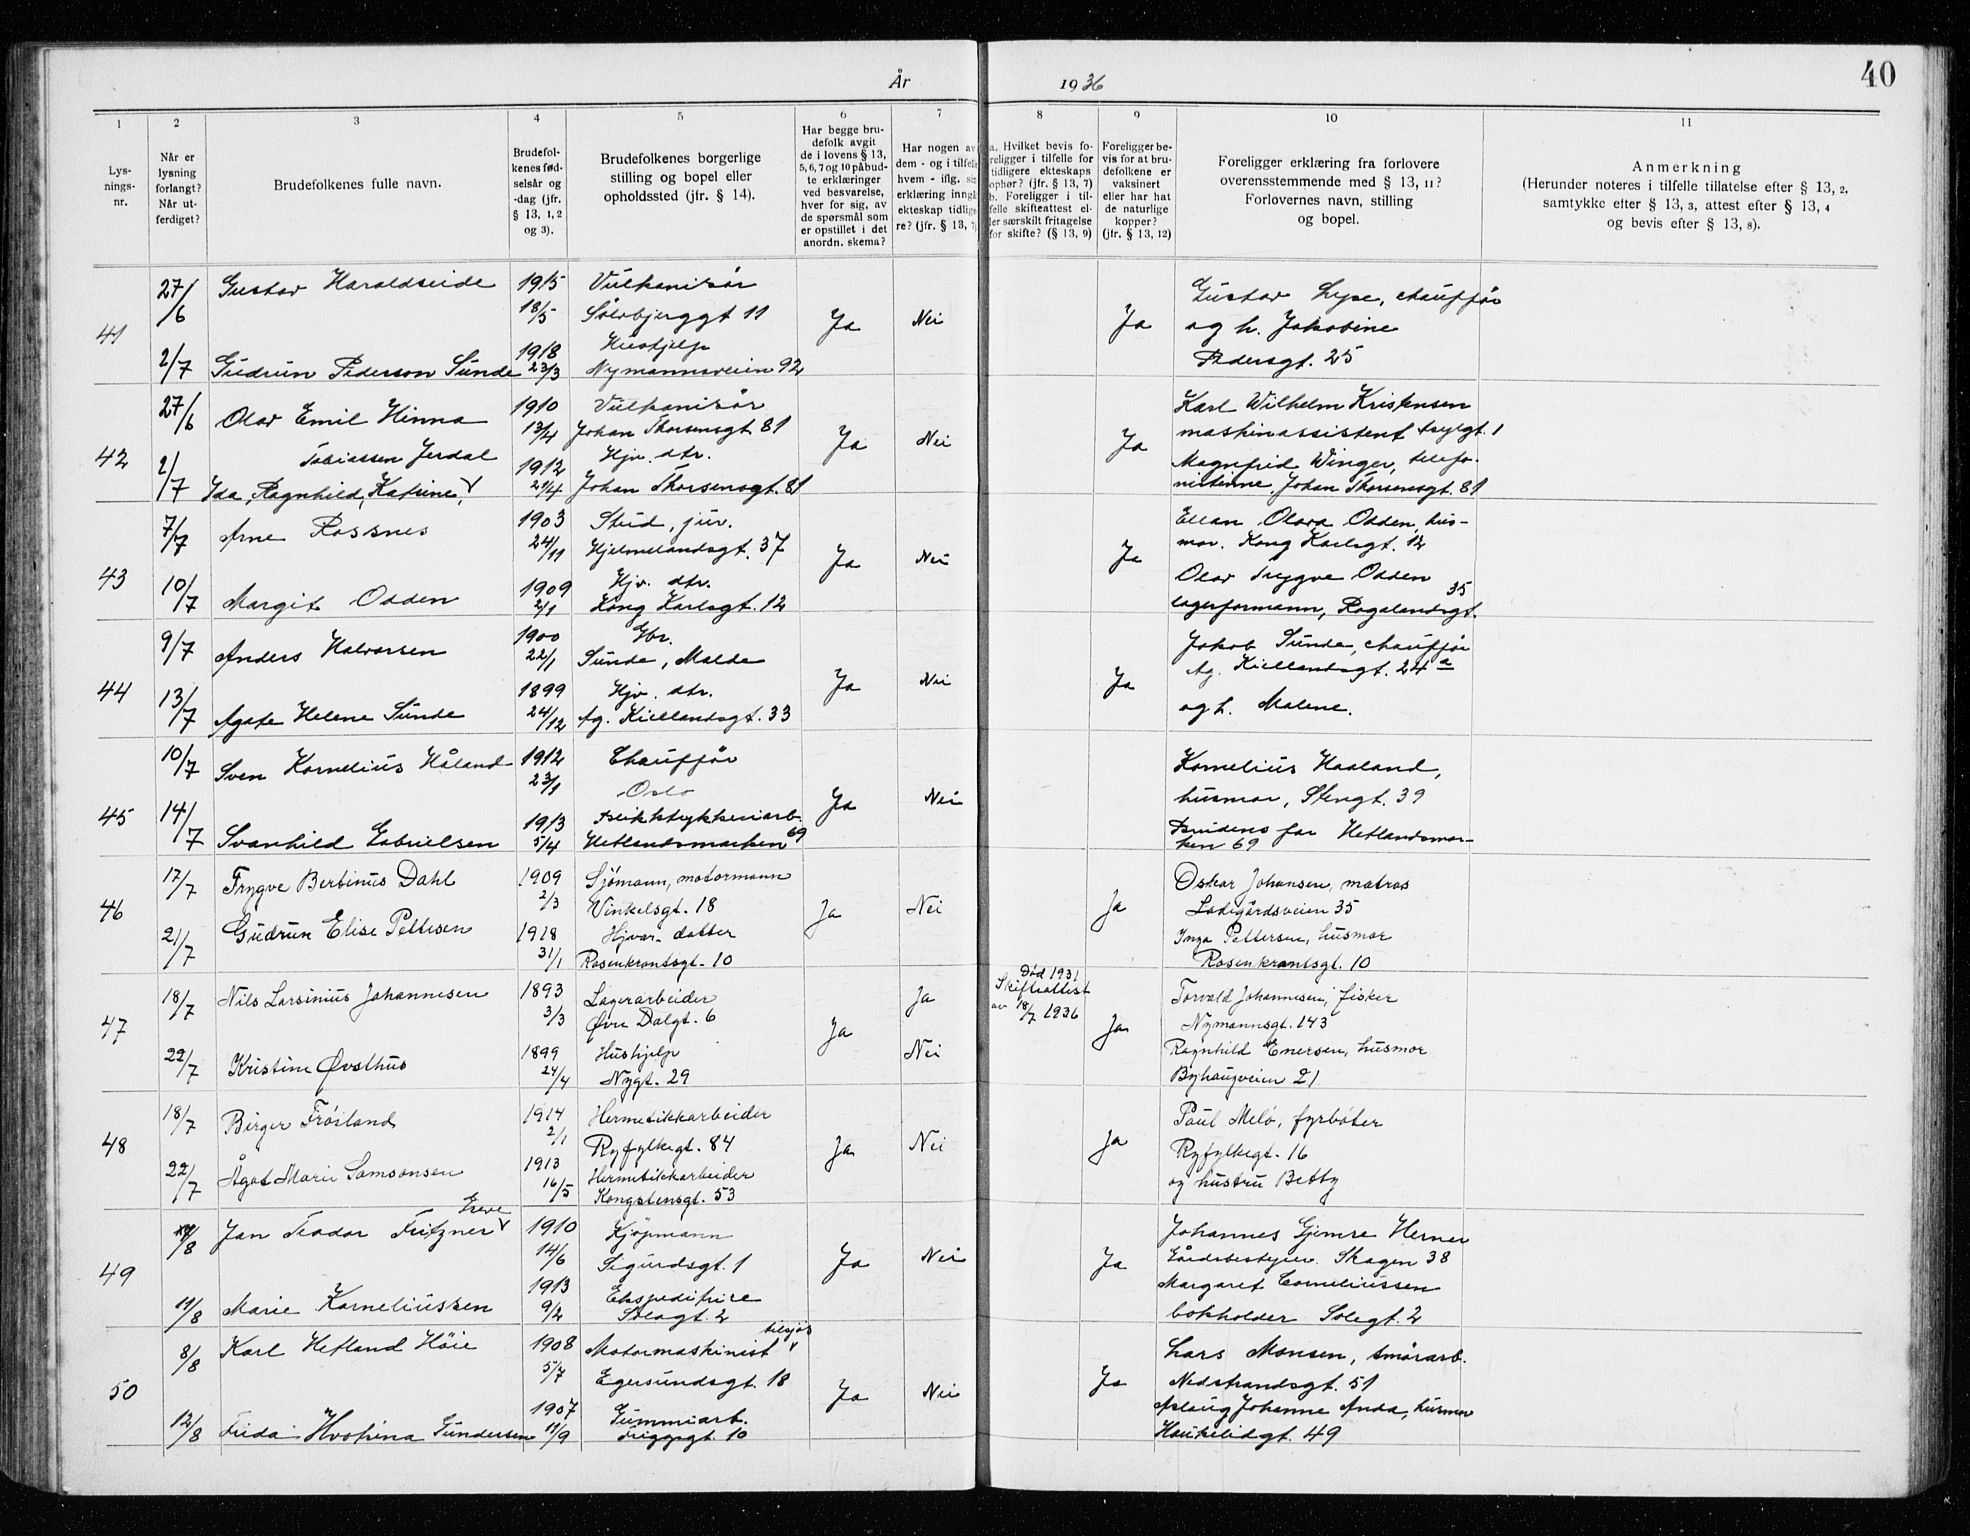 År 1936
40
1 2 3 4 5 6 7 8 9 10 11
Lys-
nings-
nr.
Når er
lysning
forlangt?
Når ut-
ferdiget?
Brudefolkenes fulle navn.
Brudefol-
kenes fød-
selsår og
-dag (jfr.
§ 13, 1, 2
og 3).
Brudefolkenes borgerlige
stilling og bopel eller
opholdssted (jfr. § 14).
Har begge bru-
defolk avgit
de i lovens § 13,
5, 6, 7 og 10 påbud-
te erklæringer
ved besvarelse,
hver for sig, av
de spørsmål som
er opstillet i det
anordn. skema?
Har nogen av
dem - og i tilfelle
hvem - iflg. sin
erklæring inngå
ekteskap tidlige
re? (jfr. § 13, 7)
a. Hvilket bevis fo-
religger i tilfelle for
tidligere ekteskaps
ophør? (jfr. § 13, 7)
b. Foreligger i til-
felle skifteattest el-
ler særskilt fritagelse
for skifte? (§ 13, 9)
Foreligger be-
vis for at bru-
defolkene er
vaksinert
eller har hat
de naturlige
kopper?
(jfr. § 13, 12)
Foreligger erklæring fra forlovere
overensstemmende med § 13, 11?
Forlovernes navn, stilling
og bopel.
Anmerkning
(Herunder noteres i tilfelle tillatelse efter § 13, 2.
samtykke efter § 13, 3, attest efter § 13, 4
og bevis efter § 13, 8).
41
27/6 Gustav Haraldseide 1915 18/5 Vulkanisør
Sølvbjerggt 11
Ja Nei Ja
Gustav Lyse, chauffør
og h. Jakobine
Pedersgt. 25
2/7 Gudrun Pederson Sunde 1918 23/3 Hushjelp
Nymannsveien 92
42
27/6 Olav Emil Hinna 1910 13/4 Vulkanisør
Johan Thorsensgt. 81
Ja Nei Ja
Karl Wilhelm Kristensen
maskinassistent 1
Magnfrid Winger, telefo-
nistinne, Johan Thorsensgt. 81
Tobiassen Jerdal
2/7 Ida, Ragnhild, Katrine, V 1912 21/4 Hjv. dtr.
Johan Thorsensgt. 81
43
7/7 Arne Rossnes 1903 24/11 Stud. jur.
Hjelmelandsgt. 37
Ja Nei Ja
Ellan Olava Odden, hus-
mor. Kong Karlsgt. 12
Olav Trygve Odden
35
lagerformann, Rogalandsgt.
10/7 Margit Odden 1909 2/1 Hjv. dtr.
Kong Karlsgt. 12
44
9/7 Anders Halvorsen 1900 22/1 Gbr.
Sunde, Malde
Ja Nei Ja
Jakob Sunde, chauffør
Ag. Kiellandsgt. 24 a
og h. Malene.
13/7 Agate Helene Sunde 1899 24/12 Hjv. dtr.
Ag. Kiellandsgt. 33
45
10/7 Sven Kornelius Håland 1912 23/1 Chauffør
Oslo
Ja Nei
Kornelius Haaland,
husmor, Stengt. 39
Brudens far Hetlandsmar-
ken 69
14/7 Svanhild Gabrielsen 1913 5/4
Hetlandsmarken 69
46
17/7 Trygve Bertinus Dahl 1909 2/3 Sjømann, motormann
Vinkelsgt. 18
Ja Nei Ja
Oskar Johansen, matros
Ladegårdsveien 35
Inga Pettersen, husmor
Rosenkrantsgt. 10
21/7 Gudrun Elise Pettersen 1918 31/1 Hjvær. datter
Rosenkrantsgt. 10
47
18/7 Nils Larsinius Johannesen 1893 3/3 Lagerarbeider
Øvre Dalgt. 6
Ja Ja Død 1931
Skifteattest
av 18/7 1936
Ja
Torvald Johannesen, fisker
Nymannsgt. 143
Ragnhild Enersen, husmor
Byhaugveien 21
22/7 Kristine Øvsthus 1899 24/4 Hushjelp
Nygt. 29
Nei
48
18/7 Birger Frøiland 1914 2/1 Hermetikkarbeider
Ryfylkegt. 84
Ja Nei Ja
Paul Melø, fyrbøter
Ryfylkegt. 16
og hustru Betty
22/7 Ågot Marie Samsonsen 1913 16/5 Hermetikkarbeider
Kongstensgt. 53
49
Greve
/8 Jan Teodor Fritzner V 1910 14/6 Kjøpmann
Sigurdsgt. 1
Ja Nei Ja
Johannes Gjemre Herner
Gårdbestyrer. Skagen 38
Margaret Corneliussen
bokholder Solagt. 2
11/8 Marie Korneliussen 1913 9/2 Ekspeditrice
Solagt. 2
50
8/8 Karl Hetland Höie 1908 5/7 Motormaskinist V tilsjøs
Egersundsgt. 18
Ja Nei Ja
Lars Monsen, smörarb.
Nedstrandsgt. 51
Aslaug Johanne Anda, husmor
Haukeligt. 49
12/8 Frida Gundersen 1907 11/9 Gummiarb.
Friggsgt. 10